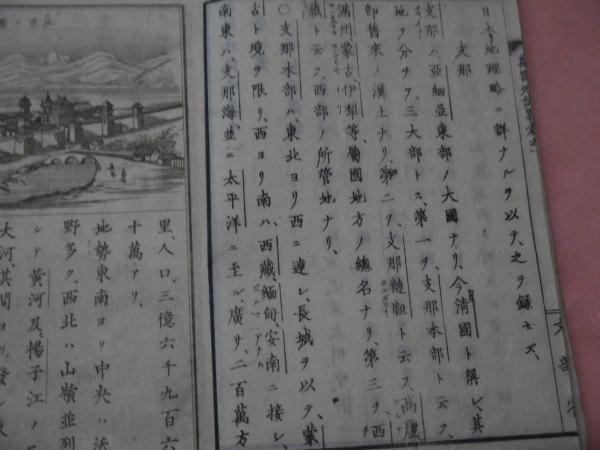 日本地理略ニ詳ナルヲ以テ、之ヲ録セズ、
支那
支那ハ、亞細亞東部ノ大國ナリ、今清國ト稱シ、其
地ヲ分チテ、三大部トス、第一ヲ、支那本部ト云フ、
即舊來ノ漢土ナリ、第二ヲ、支那韃靼ト云フ、高麗
滿洲、蒙古、伊犁等、屬國地方ノ總名ナリ、第三ヲ、西
藏ト云フ、西部ノ所管地ナリ、
〇支那本部ハ、東北ヨリ西ニ達シ、長城ヲ以テ、蒙
古ト境ヲ限リ、西ヨリ南ハ、西藏緬甸、安南ニ接シ、
南東ハ、支那海並ニ太平洋ニ至ル、廣サ、二百萬方
里、人口、三億六千九百六
十萬アリ、
地勢東南ヨリ中央ハ沃
野多ク、西北ハ山嶺並列
シテ黄河及楊子江ノ
大河、其間ヨリ發シ東